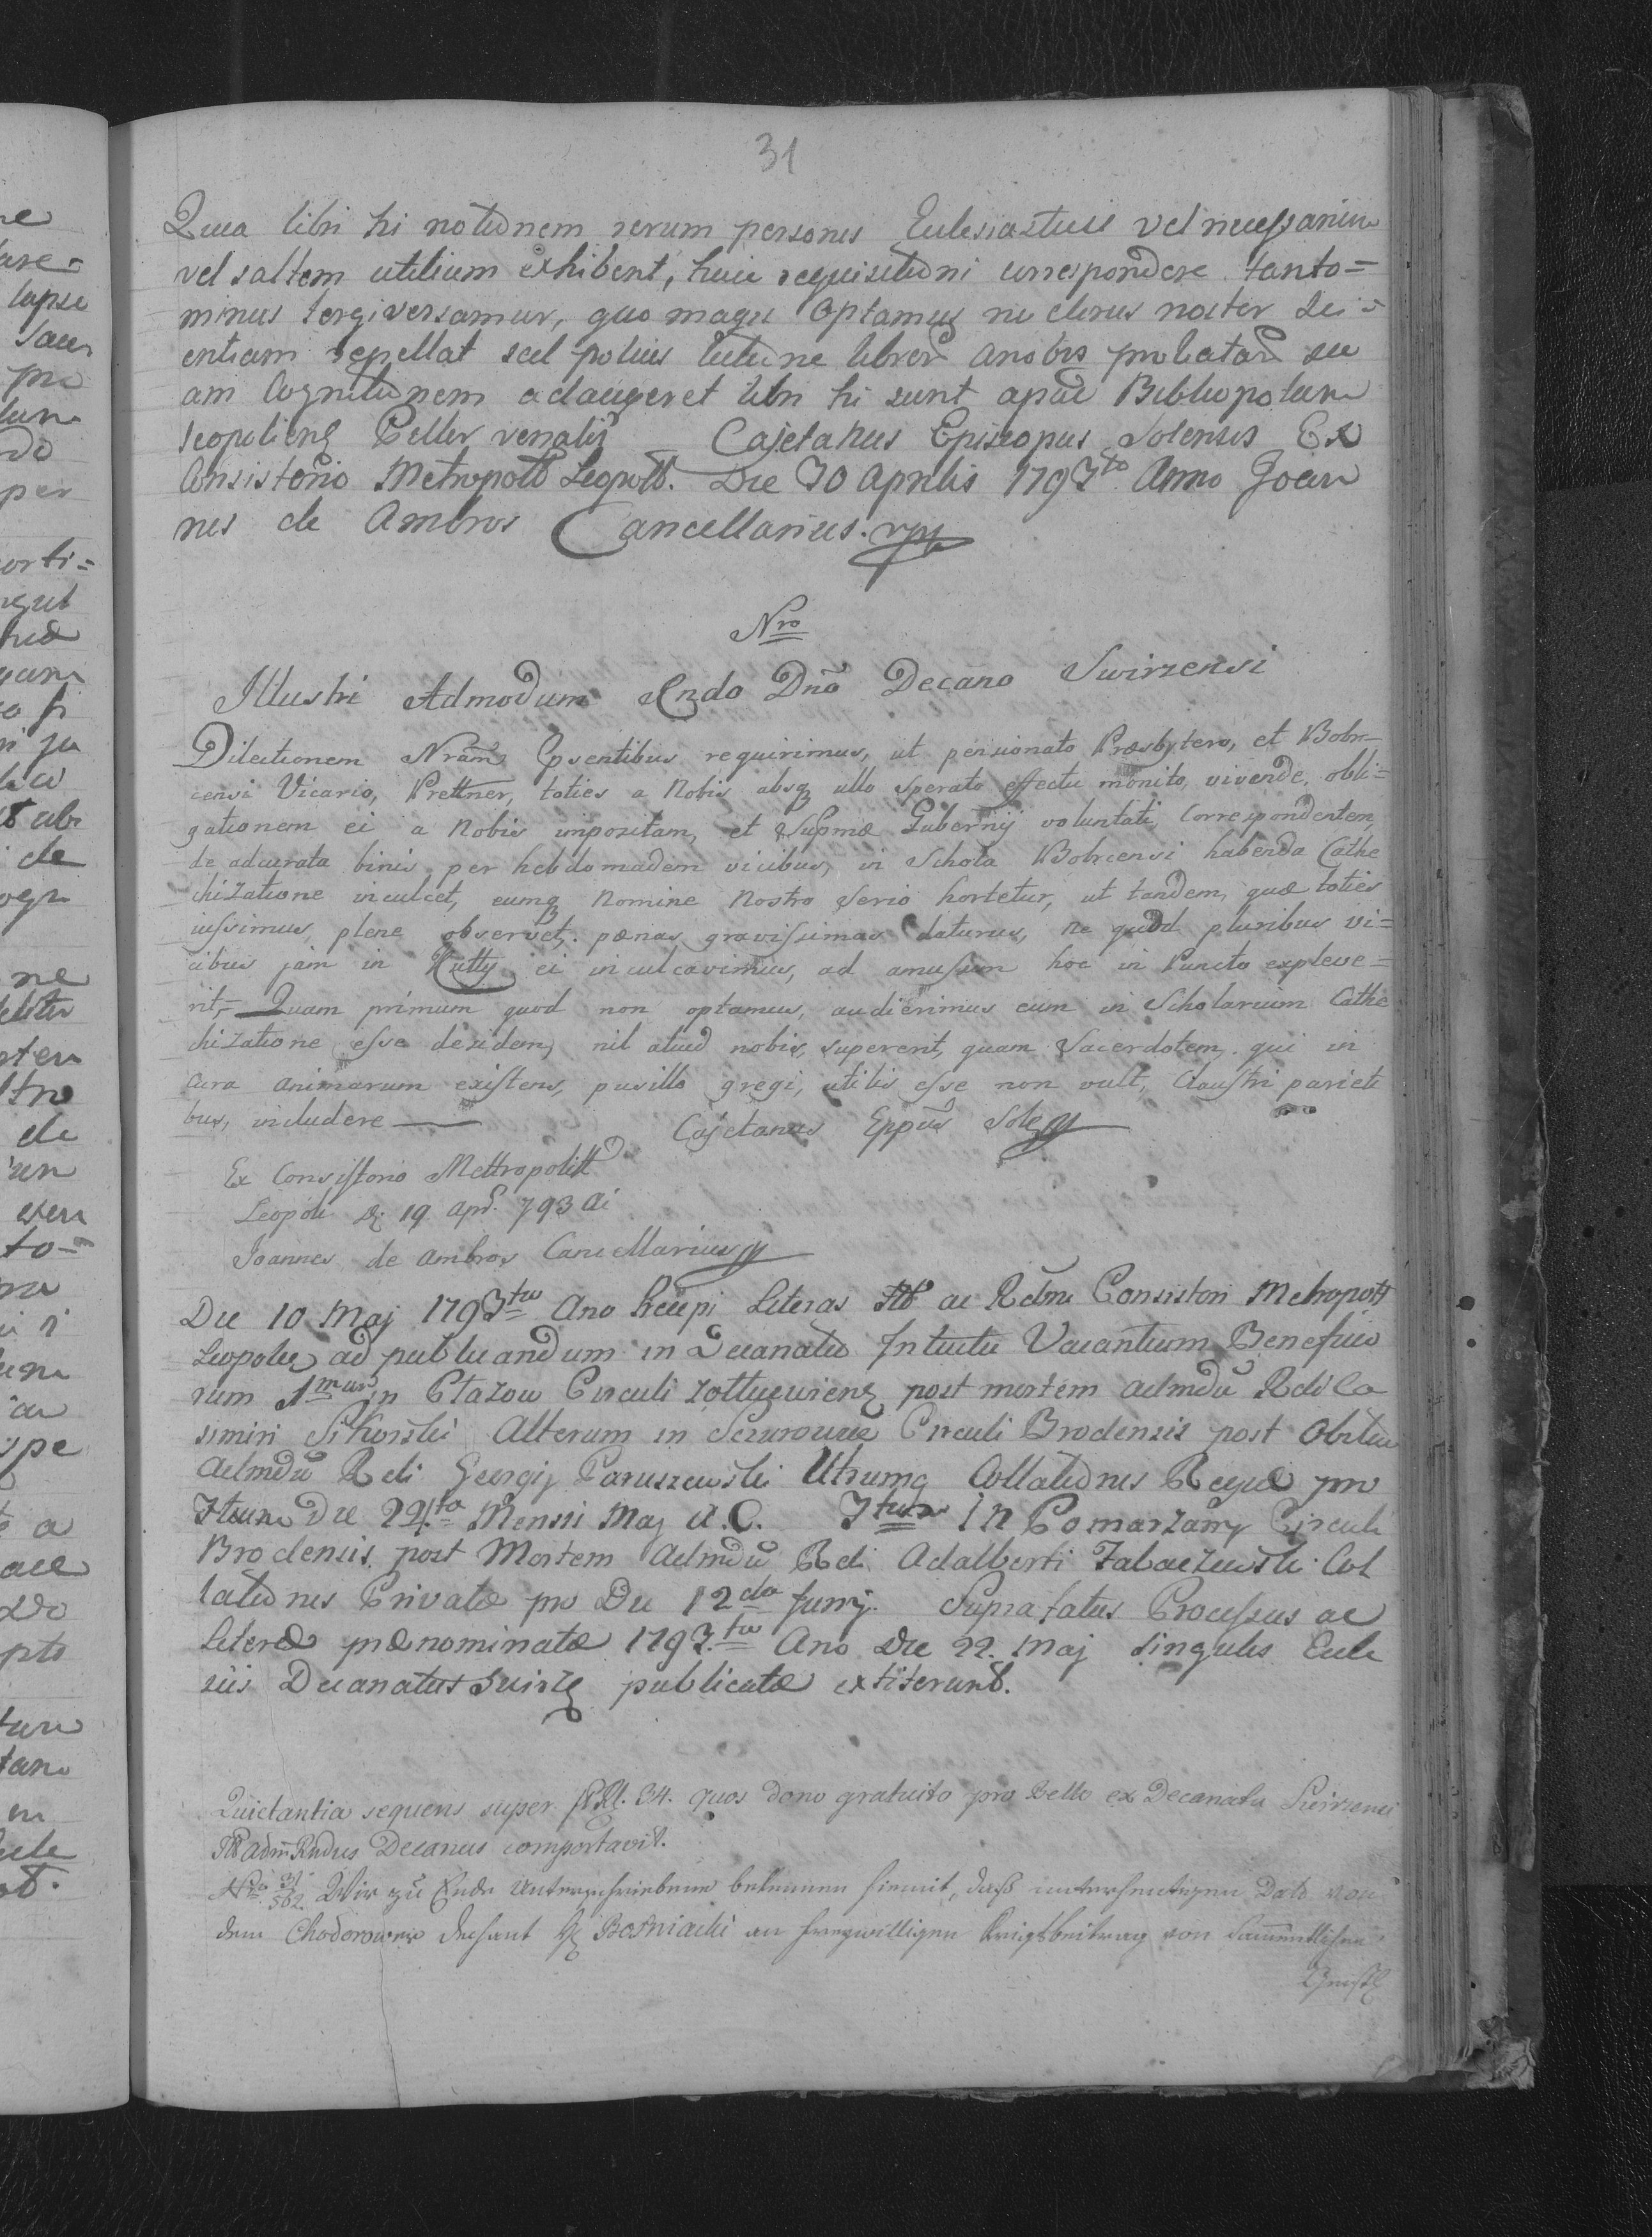 31
Quia libri hi notionem rerum personis Eclesiasticis vel necessarium
vel saltem utilium exhibent, huic requisitioni correspondere tanto=
minus tergiversamur, quo magis optamus ne clerus noster Sci=
entiam repellat sed potius lectione libror a nobis probator su
am Cognitionem adaugeret libri hi sunt apud Bibliopolam
Leopoliens Peller venales Cajetanus Episcopus Solensis Ex
Consistorio Metropolt Leopolt. Die 30 Aprilis 1793to Anno Joan
nes de Ambros Cancellarius. mp
Nro
Illustri Admodum Rndo Dno Decano Swirzensi
Dilectionem Nram Psentibus requirimus, ut pensionato Præsbytero, et Bobr=
censi Vicario, Prettner, toties a Nobis absq ullo sperato effectu monito, vivende, obli=
gationem ei a Nobis impositam, et Supmæ Gubernij voluntati Correspondentem,
de adcurata binis per hebdomadem vicibus, in Schola Bobrcensi habenda Cathe
chizatione inculcet, eumq Nomine Nostro serio hortetur, ut tandem, quæ toties
iussimus, plene observet. pænas gravissimas daturus, ne quod pluribus vi=
cibus jam in Kutty ei inculcavimus, ad amussim hoc in Puncto expleve=
rit,= Quam primum quod non optamus, audierimus eum in Scholarium Cathe
chizatione esse desidem, nil aliud nobis, supererit, quam Sacerdotem, qui in
Cura animarum existens, pusillo gregi, utilis esse non vult, Claustri pariete
bus, includere Cajetanus Eppus Sols
Ex Consistorio Mettropolitt
Leopoli d. 19 apr. 793 ai
Joannes de Ambros Cancellarius
Die 10 Maj 1793tio Ano Recepi Literas Ill ac Rdmi Consistori Metropolt
Leopolie ad publicandum in Decanatu Intuitu Vacantium Beneficio
rum 1mum in Ptazow Circuli zottkiewiens post mortem admdu Rdi Ca
simiri Sikorski Alterum in Szczurowice Circuli Brodensis post Obitum
Admdu Rdi Georgij Paruszewski Utrumq Collationis Regiæ pro
Itum Die 24ta Mensis Maj a.C. 3tium In Pomarzany Circuli
Brodensis post Mortem Admdu Rdi Adalberti Zabaczewski Col
lationis Privatæ pro Die 12da Junij. Suprafatus Processus ac
Literæ prænominatæ 1793.tio Ano Die 22. Maj singulis Ecle
siis Decanatus Swirz publicatæ extiterunt.
Quietantia sequens super fRl. 34. quos dono gratuito pro bello ex Decanatu Swirzensi
Ill Adm Rndus Decanus comportavit.
Nro 31/502 Wir zu Ende Unterschriebene bekennen hiemit, daß unterheutigen Dato von
dem Chodorower Dechant H Bosniacki an freywilligen Kriegsbeitrag von Sammentlichen